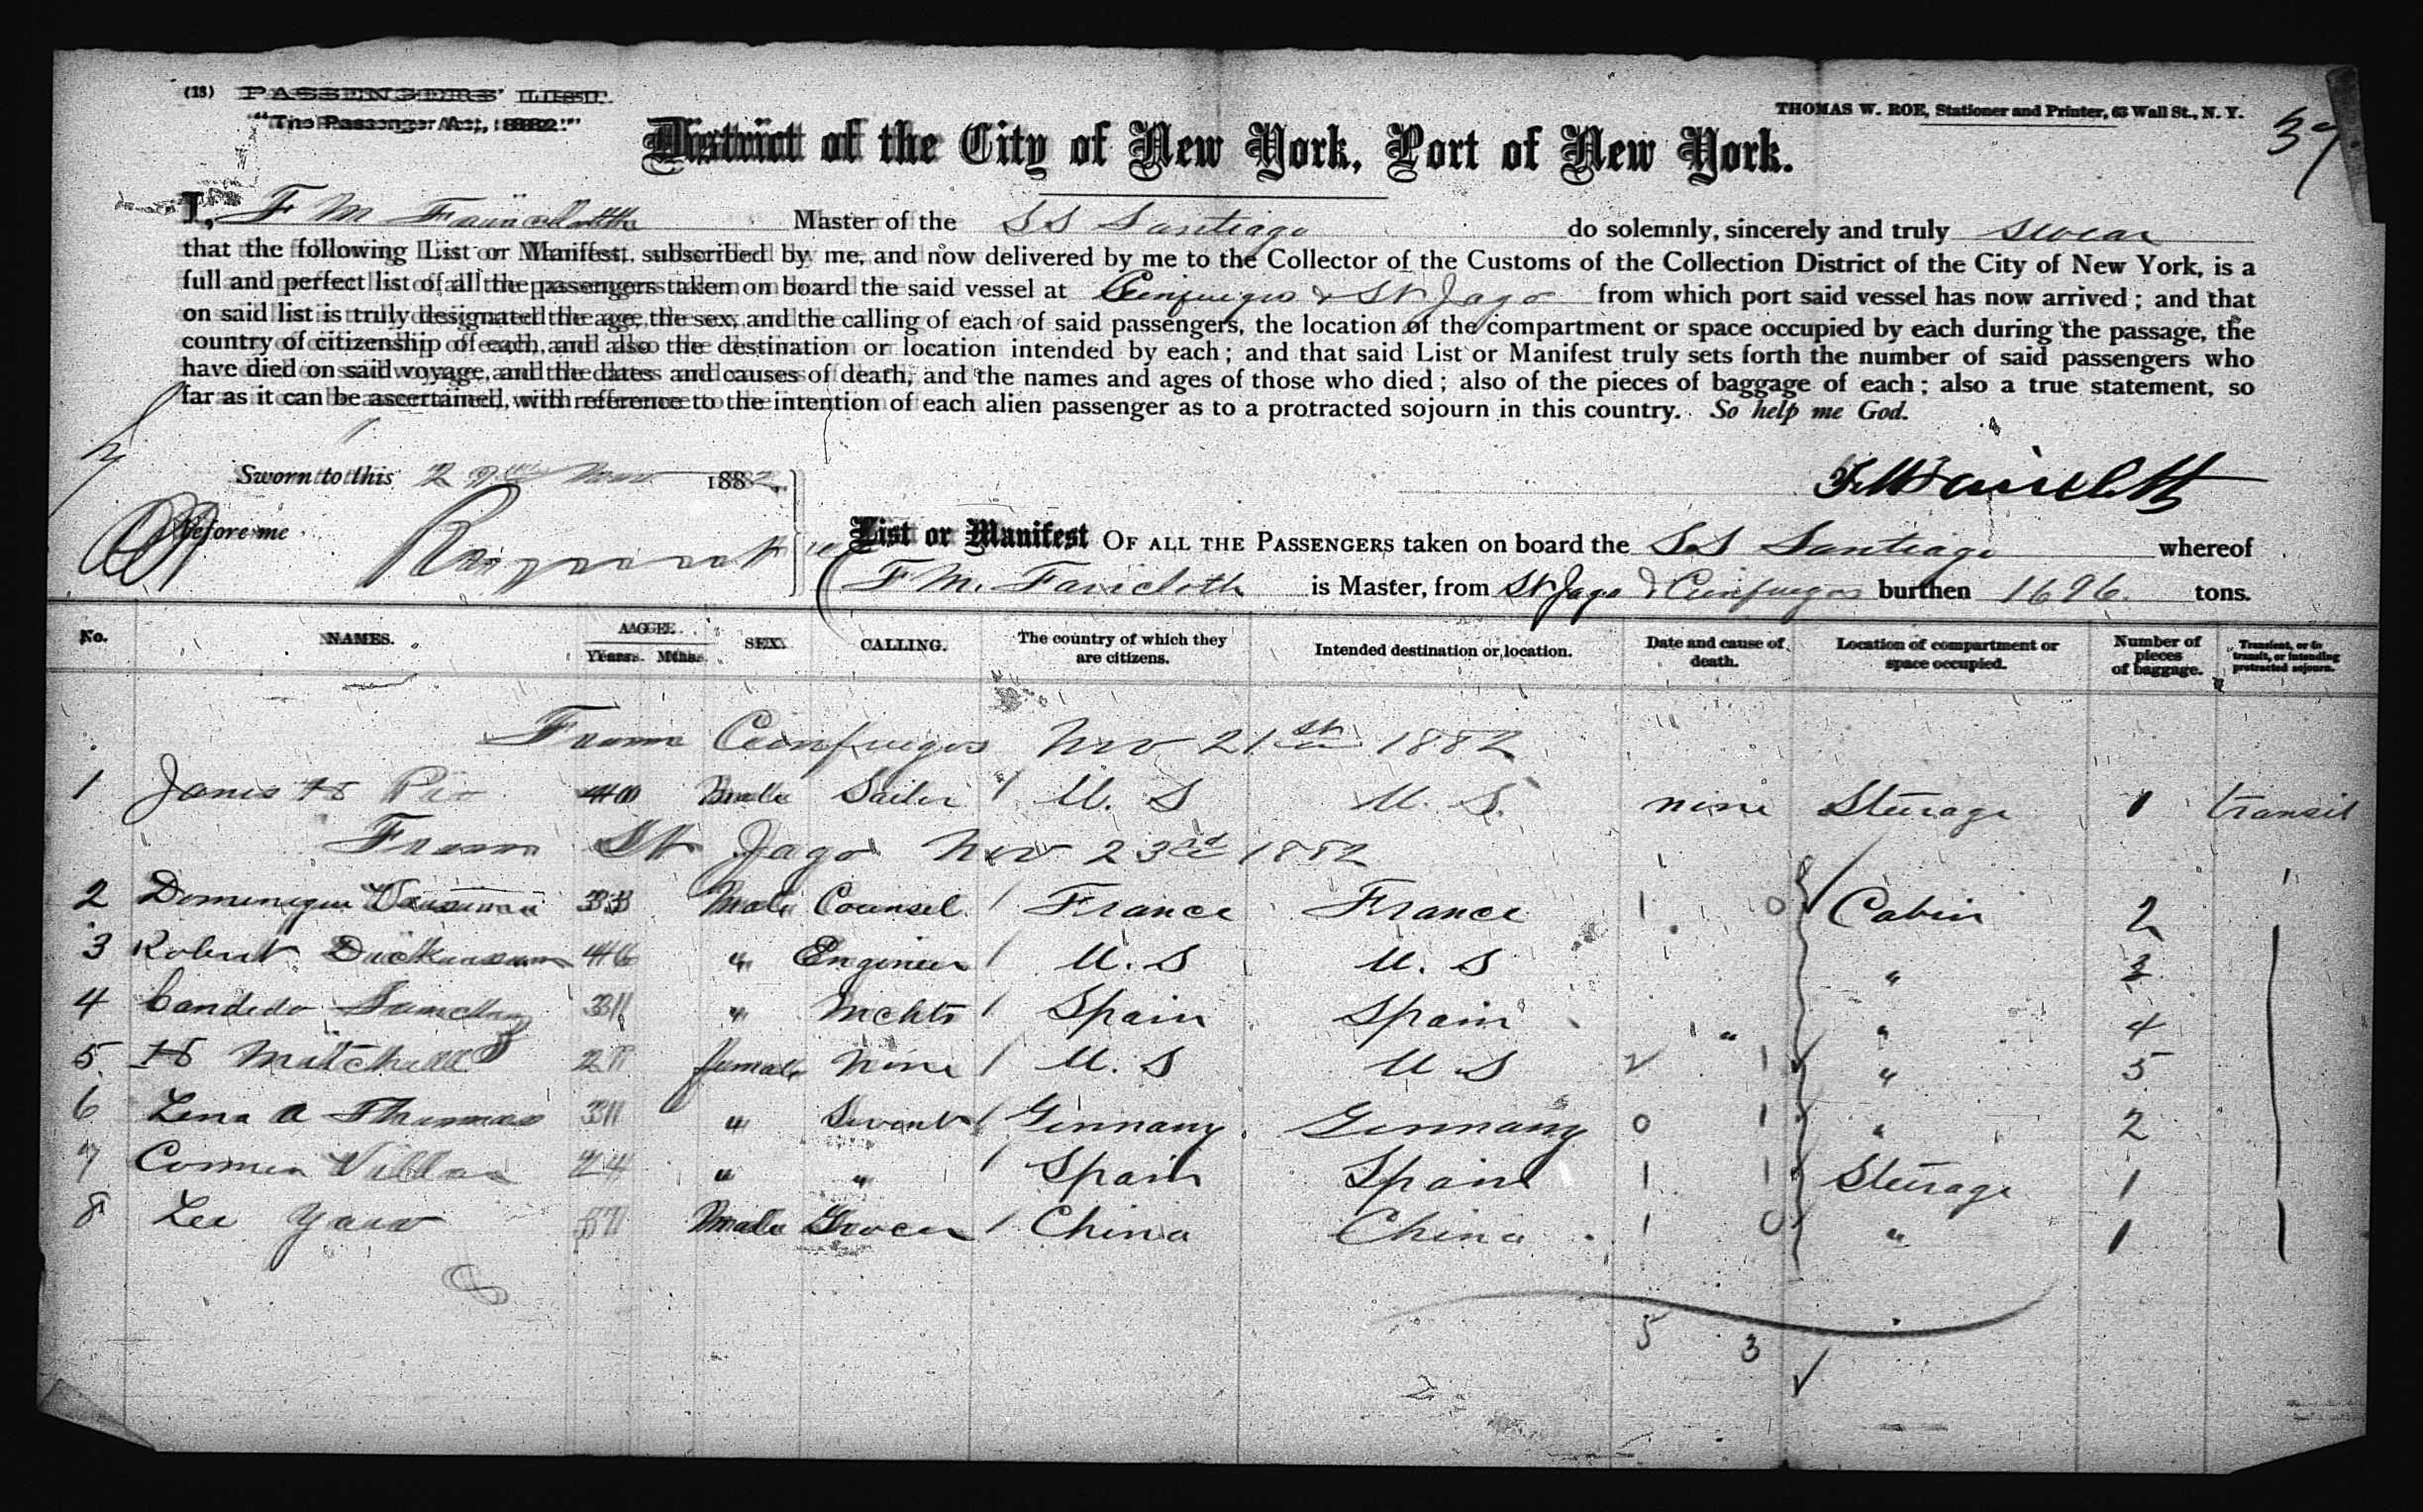 (13) PASSENGERS' LIST.
"The Passenger Act, 1882."
THOMAS W. ROE, Stationer and Printer, 63 Wall St., N. Y.
37
District of the City of New York, Port of New York.
I, F M Faircloth Master of the SS Santiago do solemnly, sincerely and truly swear
that the following List or Manifest, subscribed by me, and now delivered by me to the Collector of the Customs of the Collection District of the City of New York, is a
full and perfect list of all the passengers taken on board the said vessel at Cienfuegos & St Jago from which port said vessel has now arrived; and that
on said list is truly designated the age, the sex, and the calling of each of said passengers, the location of the compartment or space occupied by each during the passage, the
country of citizenship of each, and also the destination or location intended by each; and that said List or Manifest truly sets forth the number of said passengers who
have died on said voyage, and the dates and causes of death, and the names and ages of those who died; also of the pieces of baggage of each; also a true statement, so
far as it can be ascertained, with reference to the intention of each alien passenger as to a protracted sojourn in this country. So help me God.
Sworn to this Nov 1882
F M Faircloth
Before me
List or Manifest OF ALL THE PASSENGERS taken on board the SS Santiago whereof
F M. Faircloth is Master, from St Jago & Cienfuegos burthen 1696 tons.
No. NAMES. AGE. Years. Mths. SEX. CALLING. The country of which they are citizens. Intended destination or location. Date and cause of death. Location of compartment or space occupied. Number of pieces of baggage. Transient, or in transit, or intending protracted sojourn.
From Cienfuegos Nov 21st 1882
1 James H 40 Male Sailor U. S U. S. none Steerage 1 transit
From St Jago Nov 23rd 1882
2 Dominique 33 Male Counsel France France 1 0 Cabin 2
3 Robert Dickinson 46 " Engineer U. S U. S " 3
4 Candido 31 " Mcht Spain Spain " " 4
5 H Mitchell 27 female None U. S U S 1 " 5
6 Lena A Thomas 31 " Servant Germany Germany 0 1 " 2
7 Carmen Villar 24 " " Spain Spain 1 1 Steerage 1
8 Lee Yaw 57 Male Grocer China China 1 0 " 1
5 3
2